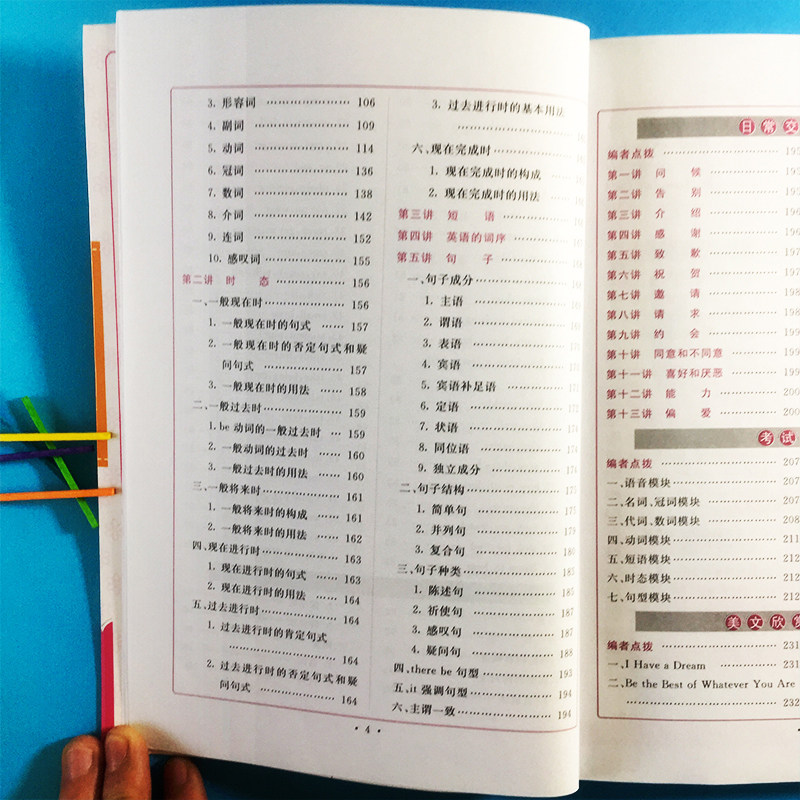 3. 形容词 …………………… 106
4. 副词 …………………… 109
5. 动词 …………………… 114
6. 冠词 …………………… 136
7. 数词 …………………… 138
8. 介词 …………………… 142
9. 连词 …………………… 152
10. 感叹词 …………………… 155
第二讲 时 态 ………………… 156
一、一般现在时 ………………… 156
1. 一般现在时的句式 …… 157
2. 一般现在时的否定句式和疑
问句式 ………………… 157
3. 一般现在时的用法 …… 158
二、一般过去时 ………………… 159
1. be 动词的一般过去时 … 159
2. 一般动词的过去时 …… 160
3. 一般过去时的用法 …… 160
三、一般将来时 ………………… 161
1. 一般将来时的构成 …… 161
2. 一般将来时的用法 …… 162
四、现在进行时 ………………… 163
1. 现在进行时的句式 …… 163
2. 现在进行时的用法 …… 164
五、过去进行时 ………………… 164
1. 过去进行时的肯定句式
………………………… 164
2. 过去进行时的否定句式和疑
问句式 ………………… 164
3. 过去进行时的基本用法
…………………………
六、现在完成时 …………………
1. 现在完成时的构成 ……
2. 现在完成时的用法 ……
第三讲 短 语 …………………
第四讲 英语的词序 ………………
第五讲 句 子 …………………
一、句子成分 …………………
1. 主语 …………………
2. 谓语 …………………
3. 表语 …………………
4. 宾语 …………………
5. 宾语补足语 ……………
6. 定语 …………………
7. 状语 …………………
8. 同位语 …………………
9. 独立成分 ……………… 174
二、句子结构 …………………
1. 简单句 …………………
2. 并列句 ………………… 179
3. 复合句 ………………… 180
三、句子种类 ………………… 185
1. 陈述句 ………………… 185
2. 祈使句 ………………… 187
3. 感叹句 ………………… 187
4. 疑问句 ………………… 188
四、there be 句型 ……………… 193
五、it 强调句型 ………………… 194
六、主谓一致 ………………… 194
• 4 •
日常交
编者点拨 ………………… 195
第一讲 问 候 …………………
第二讲 告 别 …………………
第三讲 介 绍 …………………
第四讲 感 谢 …………………
第五讲 致 歉 …………………
第六讲 祝 贺 …………………
第七讲 邀 请 …………………
第八讲 请 求 …………………
第九讲 约 会 …………………
第十讲 同意和不同意 …………
第十一讲 喜好和厌恶 …………
第十二讲 能 力 ………………
第十三讲 偏 爱 ………………
考试
编者点拨 ………………… 207
一、语音模块 ………………… 207
二、名词、冠词模块 …………… 207
三、代词、数词模块 …………… 208
四、动词模块 ………………… 211
五、短语模块 ………………… 212
六、时态模块 ………………… 212
七、句型模块 ………………… 212
美文欣
编者点拨 ………………… 231
一、I Have a Dream ………… 231
二、Be the Best of Whatever You Are
………………………… 232